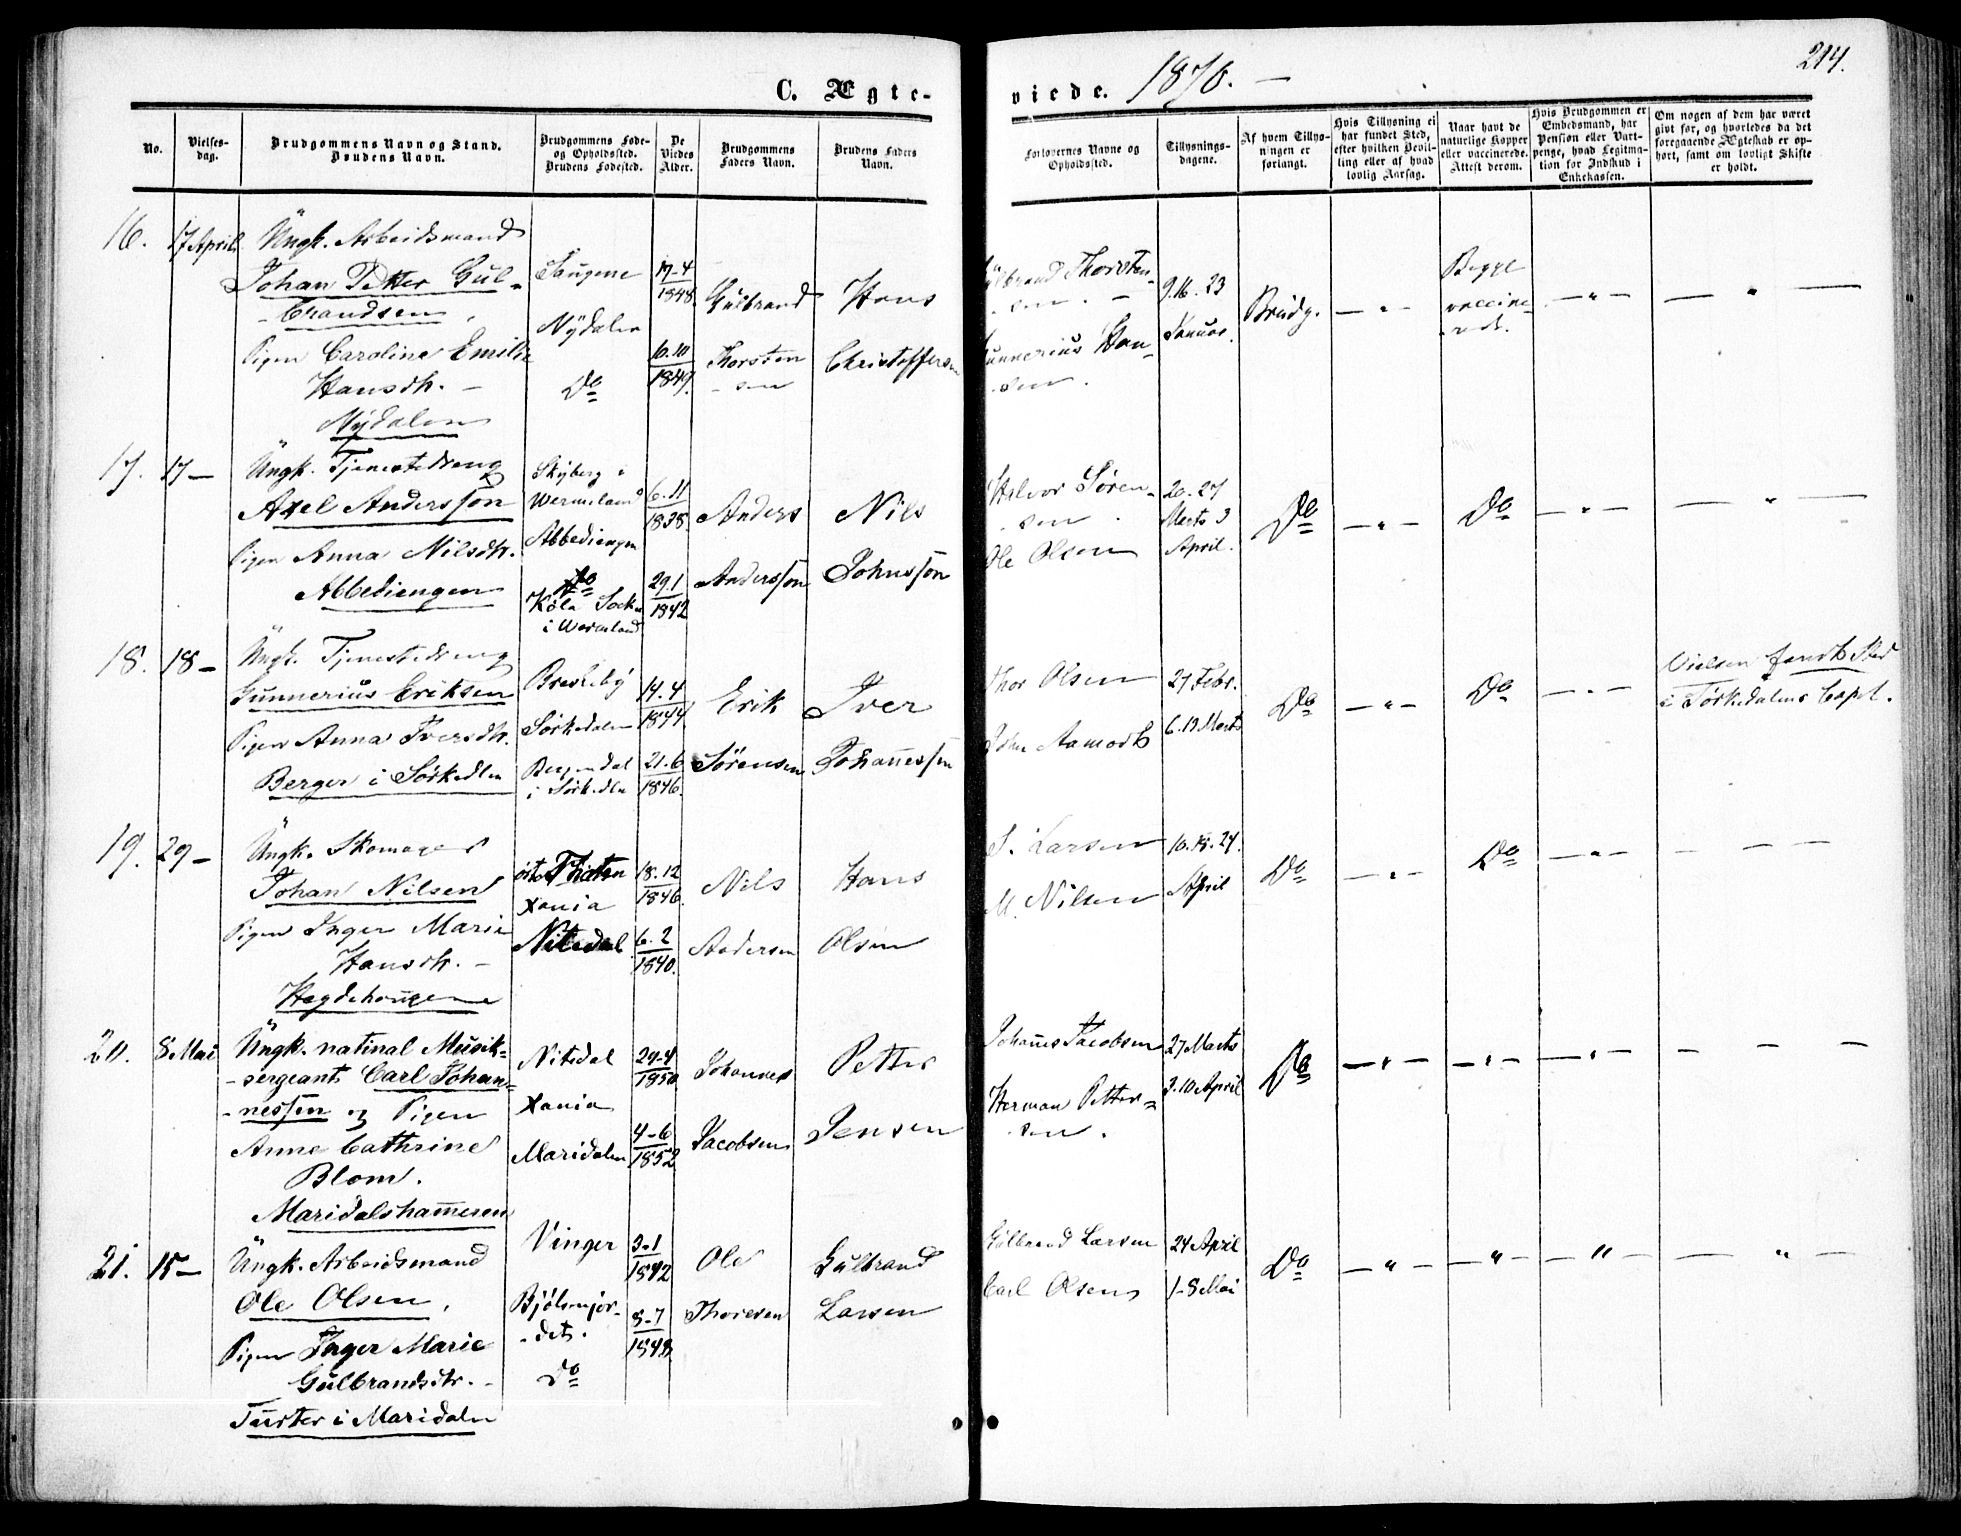 C. Ægte-
viede. 1870. —
214.
No.
Vielses-
dag.
Brudgommens Navn og Stand.
Brudens Navn.
Brudgommens Føde-
og Opholdssted.
Brudens Fødested.
De
Viedes
Alder.
Brudgommens
Faders Navn.
Brudens Faders
Navn.
Forlovernes Navne og
Opholdssted.
Tillysnings-
dagene.
Af hvem Tillys-
ningen er
forlangt.
Hvis Tillysning ei
har fundet Sted,
efter hvilken Bevil-
ling eller af hvad
lovlig Aarsag.
Naar havt de
naturlige Kopper
eller vaccinerede.
Attest derom.
Hvis Brudgommen er
Embedsmand, har
Pension eller Vart-
penge, hvad Legitima-
tion for Indskud i
Enkekassen.
Om nogen af dem har været
gift før, og hvorledes da det
foregaaende Ægteskab er op-
hørt, samt om lovligt Skifte
er holdt.
16. 17 April
Ungk. Arbeidsmand
Johan Petter Gul-
-brandsen,
Pigen Caroline Emilie
Hansdtr. —
Nydalen
Nydalen
Do
17-4
1848
10.10
1849.
Gulbrand
Thorsten
- sen
Hans
Christoffersen
Gulbrand Thorsten-
sen. —
Gunnerius Han-
sen.
9. 16. 23
Januar.
Brudg.
— " —
Begge
vaccine-
redt.
— " —
— " —
17. 17 —
Ungk. Tjenestedreng
Axel Andersson
Pigen Anna Nilsdtr.
Abbediengen
Skyberg i
Wermeland
Abbediengen
Do
Köla Sockn
i Wermland
6.11
1838
29.1
1842
Anders
Andersson
Nils
Johnsson
Halvor Søren-
sen.
Ole Olsen
20. 27
Marts 3
April.
Do
— " —
Do
— " —
— " —
18. 18 —
Ungk. Tjenestedreng
Gunnerius Eriksen
Pigen Anna Iversdtr.
Berger i Sørkedln
Sørkedalen
i Sørkedln
14.4
1844
21.6
1846.
Erik
Sørensen
Iver
Johannessen
Thor Olsen
John Aamodt
27 Febr.
6. 13 Marts
Do
— " —
Do
— " —
Vielsen fandt Sted
i Sørkedalens Capel.
19. 29 —
Ungk. Skomager
Johan Nilsen
Pigen Inger Marie
Hansdtr. —
Hegdehaugene
Xania
Nitedal
18.12
1846.
6.2
1840.
Nils
Andersen
Hans
Olsen
S. Larsen
M. Nilsen
10. 18. 24.
April
Do
— " —
Do
— " —
— — —
20. 8 Mai
Ungk. natinal Musik-
-sergeant Carl Johan-
-nessen og Pigen
Anne Cathrine
Blom.
Maridalshammeren
Nitedal
Xania
Maridalen
29-4
1850
4-6
1852
Johannes
Jacobsen
Petter
Jensen
Johannes Jacobsen
Herman Petter-
sen.
27 Marts
3. 10 April
Do
— " —
— " —
— " —
— — —
21. 15 —
Ungk. Arbeidsmand
Ole Olsen,
Pigen Inger Marie
Gulbrandsdtr. —
Turter i Maridalen
Vinger
Bjølsenjor-
-det.
Do
3-1
1842
8-7
1848
Ole
Thoresen
Gulbrand
Larsen
Gulbrand Larsen
Carl Olsen
24 April
1-8 Mai
Do
— " —
— " —
— " —
— " —